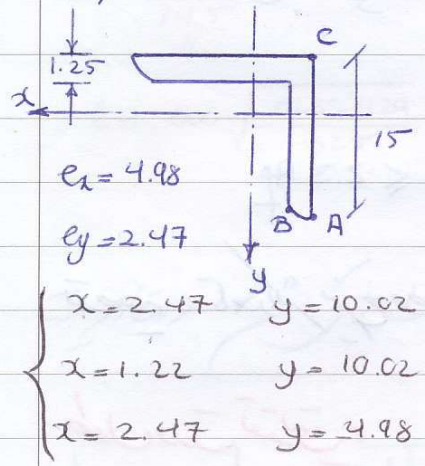 C
1.25
x
15
ex = 4.98
B A
ey = 2.47
y
x = 2.47 y = 10.02
x = 1.22 y = 10.02
x = 2.47 y = -4.98